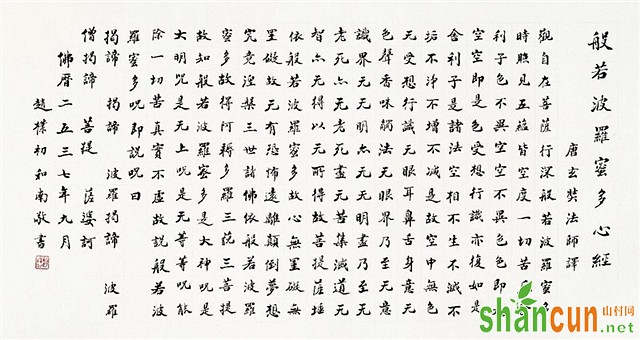 般若波羅蜜多心經
唐玄奘法師譯
觀自在菩薩行深般若波羅蜜多
時照見五蘊皆空度一切苦厄舍
利子色不異空空不異色色即是
空空即是色受想行識亦復如是
舍利子是諸法空相不生不滅不
垢不淨不增不減是故空中無色
无受想行識无眼耳鼻舌身意无
色聲香味觸法无眼界乃至无意
識界无无明亦无无明盡乃至无
老死亦无老死盡无苦集滅道无
智亦无得以无所得故菩提薩埵
依般若波羅蜜多故心無罣礙無
罣礙故无有恐怖遠離顛倒夢想
究竟涅槃三世諸佛依般若波羅
蜜多故得阿耨多羅三藐三菩提
故知般若波羅蜜多是大神咒是
大明咒是无上咒是无等等咒能
除一切苦真實不虛故說般若波
羅蜜多咒即說咒曰
揭諦 揭諦 波羅揭諦 波羅
僧揭諦 菩提 薩婆訶
佛曆二五三七年九月
趙樸初和南敬書
shancun 山村网
.net